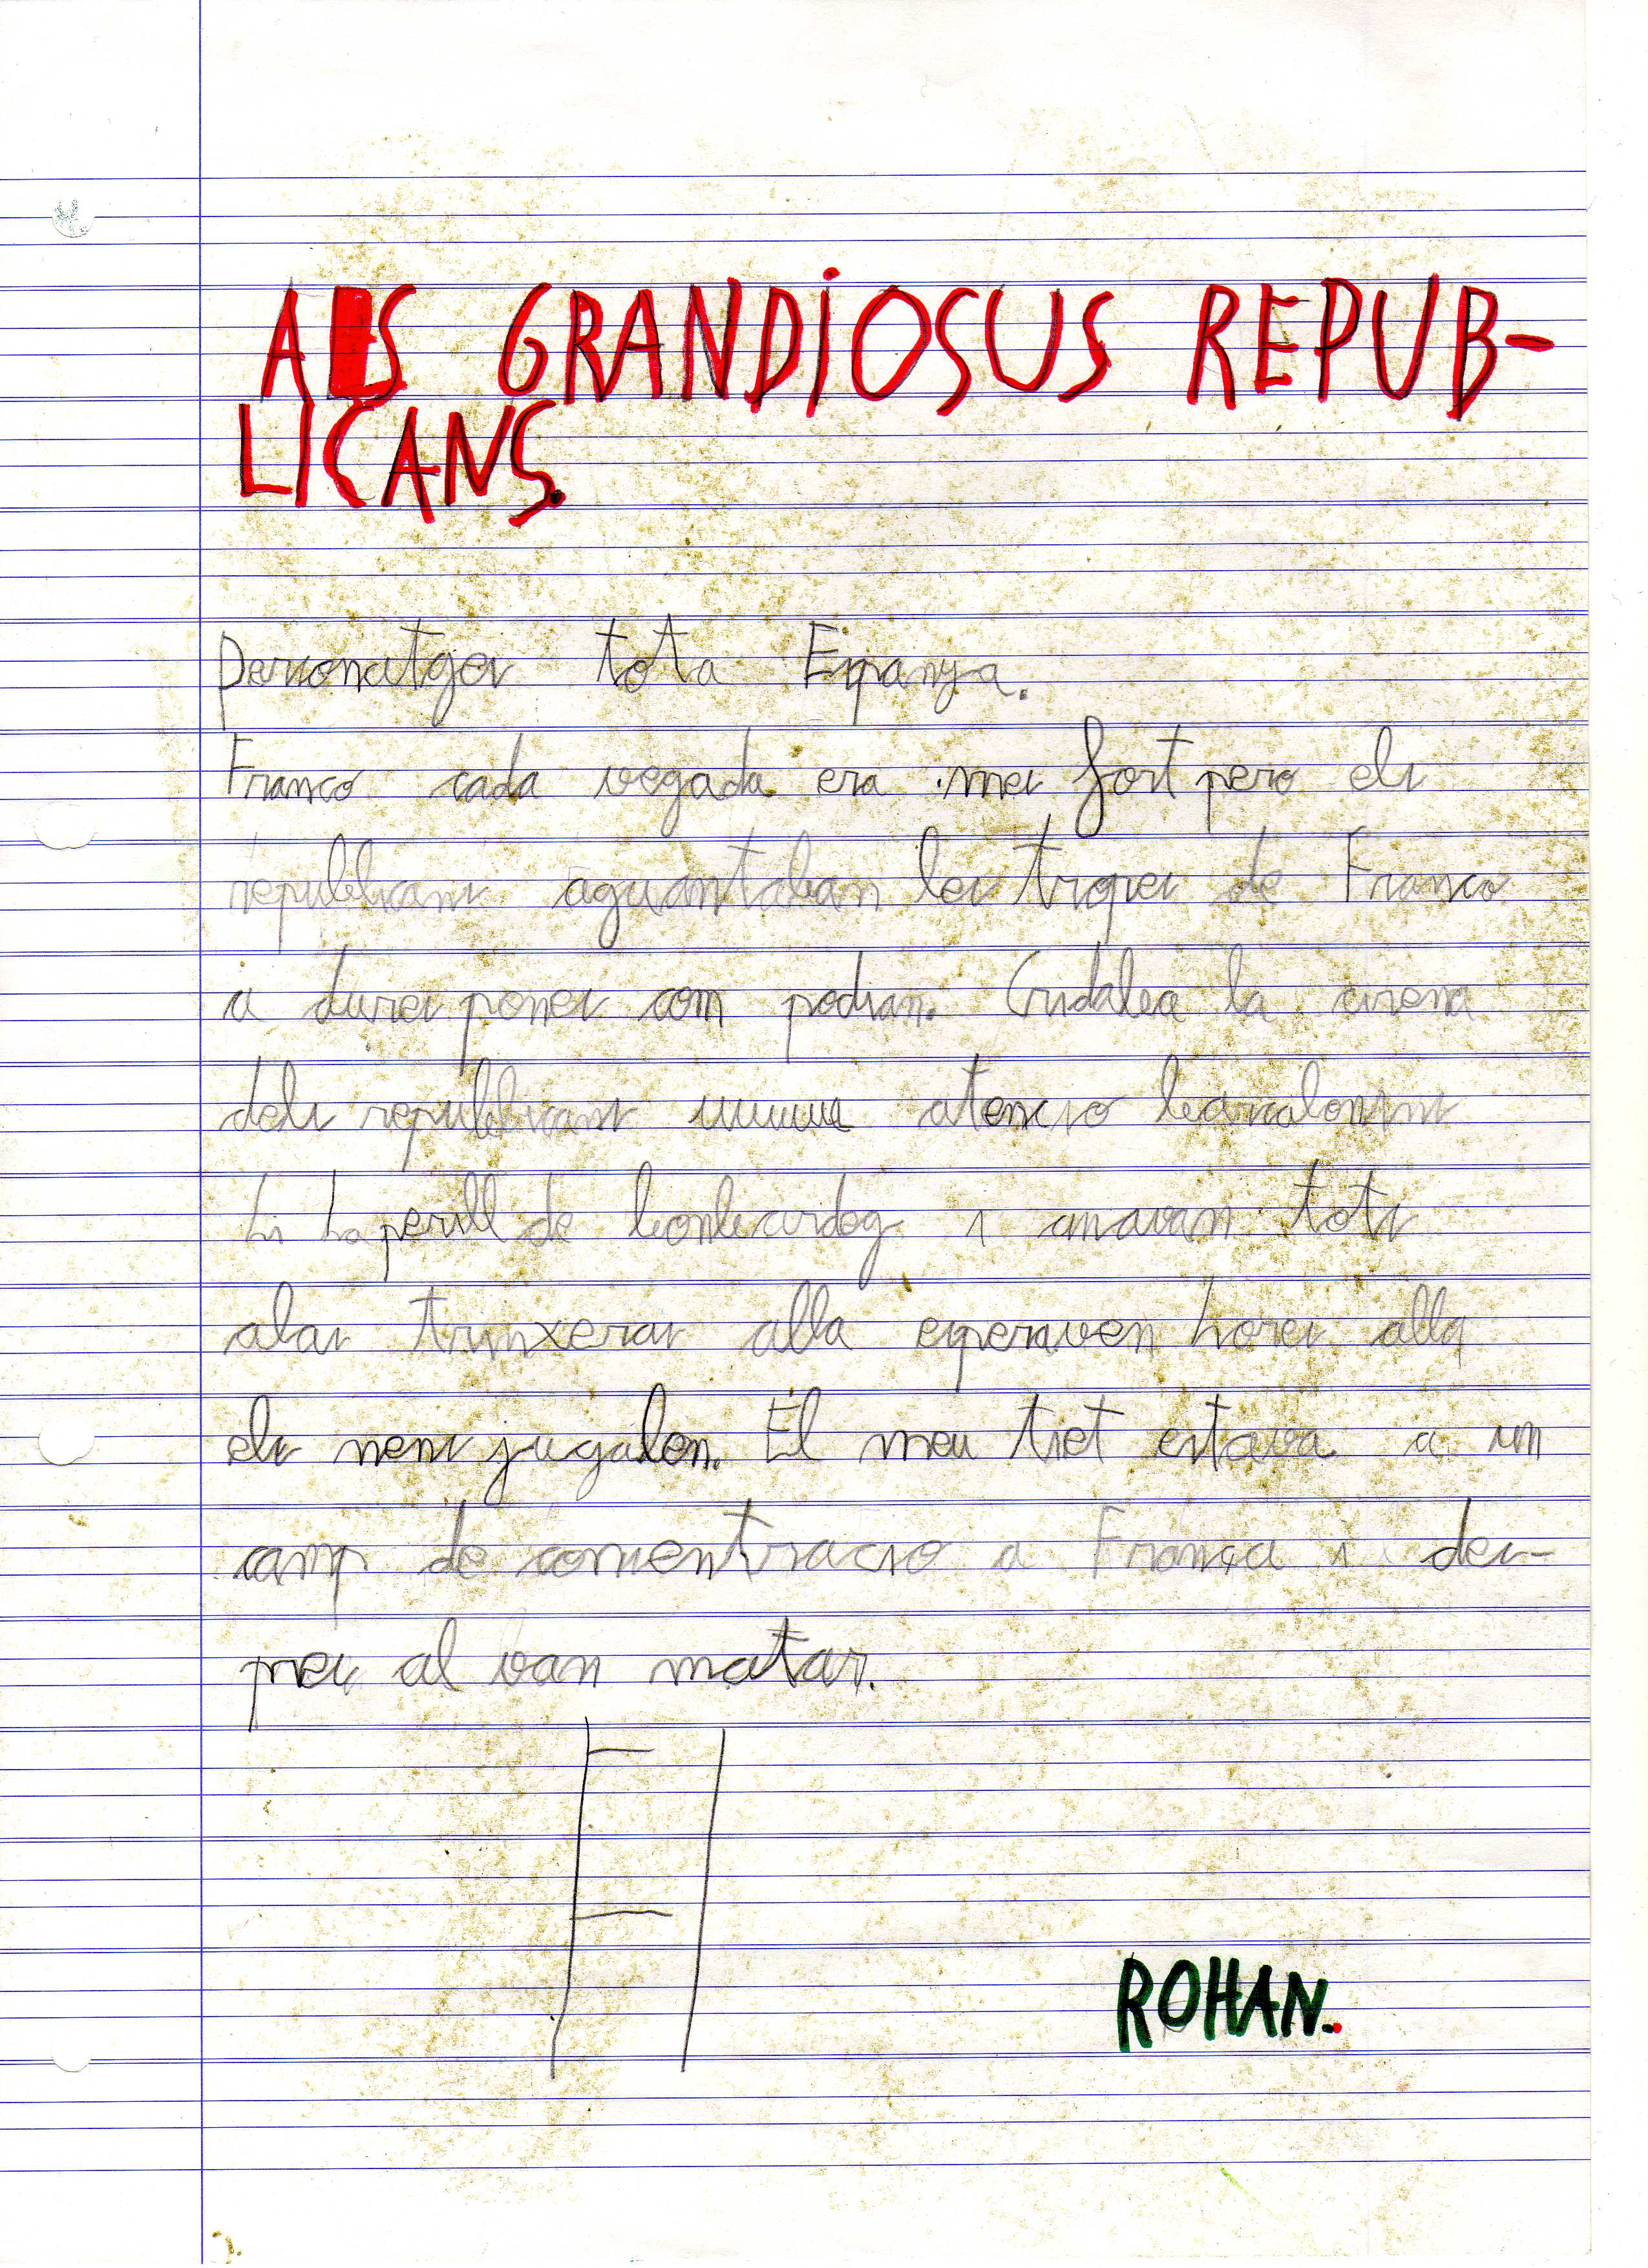 ALS GRANDIOSUS REPUB-
LICANS.
Personatges tota Espanya.
Franco cada vegada era mes fort pero els
republicans aguantaban les tropes de Franco
a dures penes com podian. Cridaba la sirena
dels republicans uuuuuu atencio barcalonins
hi ha perill de bonbardeg i anavan tots
alas trinxeras alla esperaven hores alla
els nens jugabon. El meu tiet estava a un
camp de consentracio a França i des-
pres al van matar.
ROHAN.